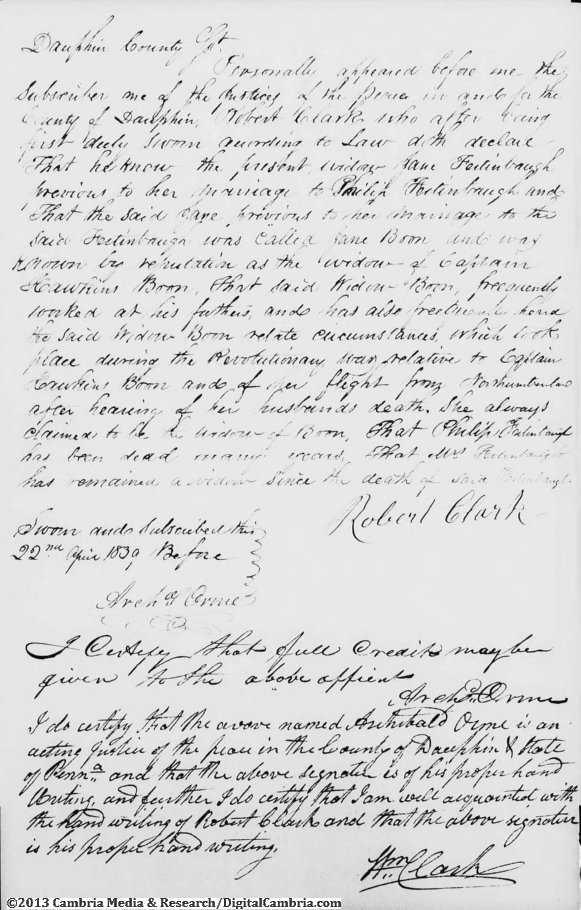 Dauphin County Sst.
Personally appeared before me the
Subscriber one of the Justices of the Peace in and for the
County of Dauphin, Robert Clark who after being
first duly Sworn according to Law doth declare
That he knew the present widow Jane Fertinbaugh
previous to her marriage to Philip Fertinbaugh and
That the said Jane previous to her marriage to the
said Fertinbaugh was Called Jane Boon and was
Known by reputation as the widow of Captain
Hawkins Boon, That said Widow Boon, frequently
worked at his fathers, and has also frequently heard
the said Widow Boon relate circumstances, which took
place during the Revolutionary war relative to Captain
Hawkins Boon and of her flight from Northumberland
after hearing of her husbands death. She always
claimed to be the widow of Boon, That Philip Fertinbaugh
has been dead many years, That Mrs Fertinbaugh
has remained a widow since the death of said Fertinbaugh.
Robert Clark
Sworn and subscribed this
22nd April 1839 Before
Archd Orme
I Certify that full Credit may be
given to the above affient
Archd Orme
I do certify that the above named Archibald Orme is an
acting Justice of the peace in the County of Dauphin & State
of Penna and that the above segnater is of his proper hand
Writing, and further I do certify that I am well acquainted with
the hand writing of Robert Clark and that the above segnater
is his proper hand writing.
Wm Clark
©2013 Cambria Media & Research/DigitalCambria.com